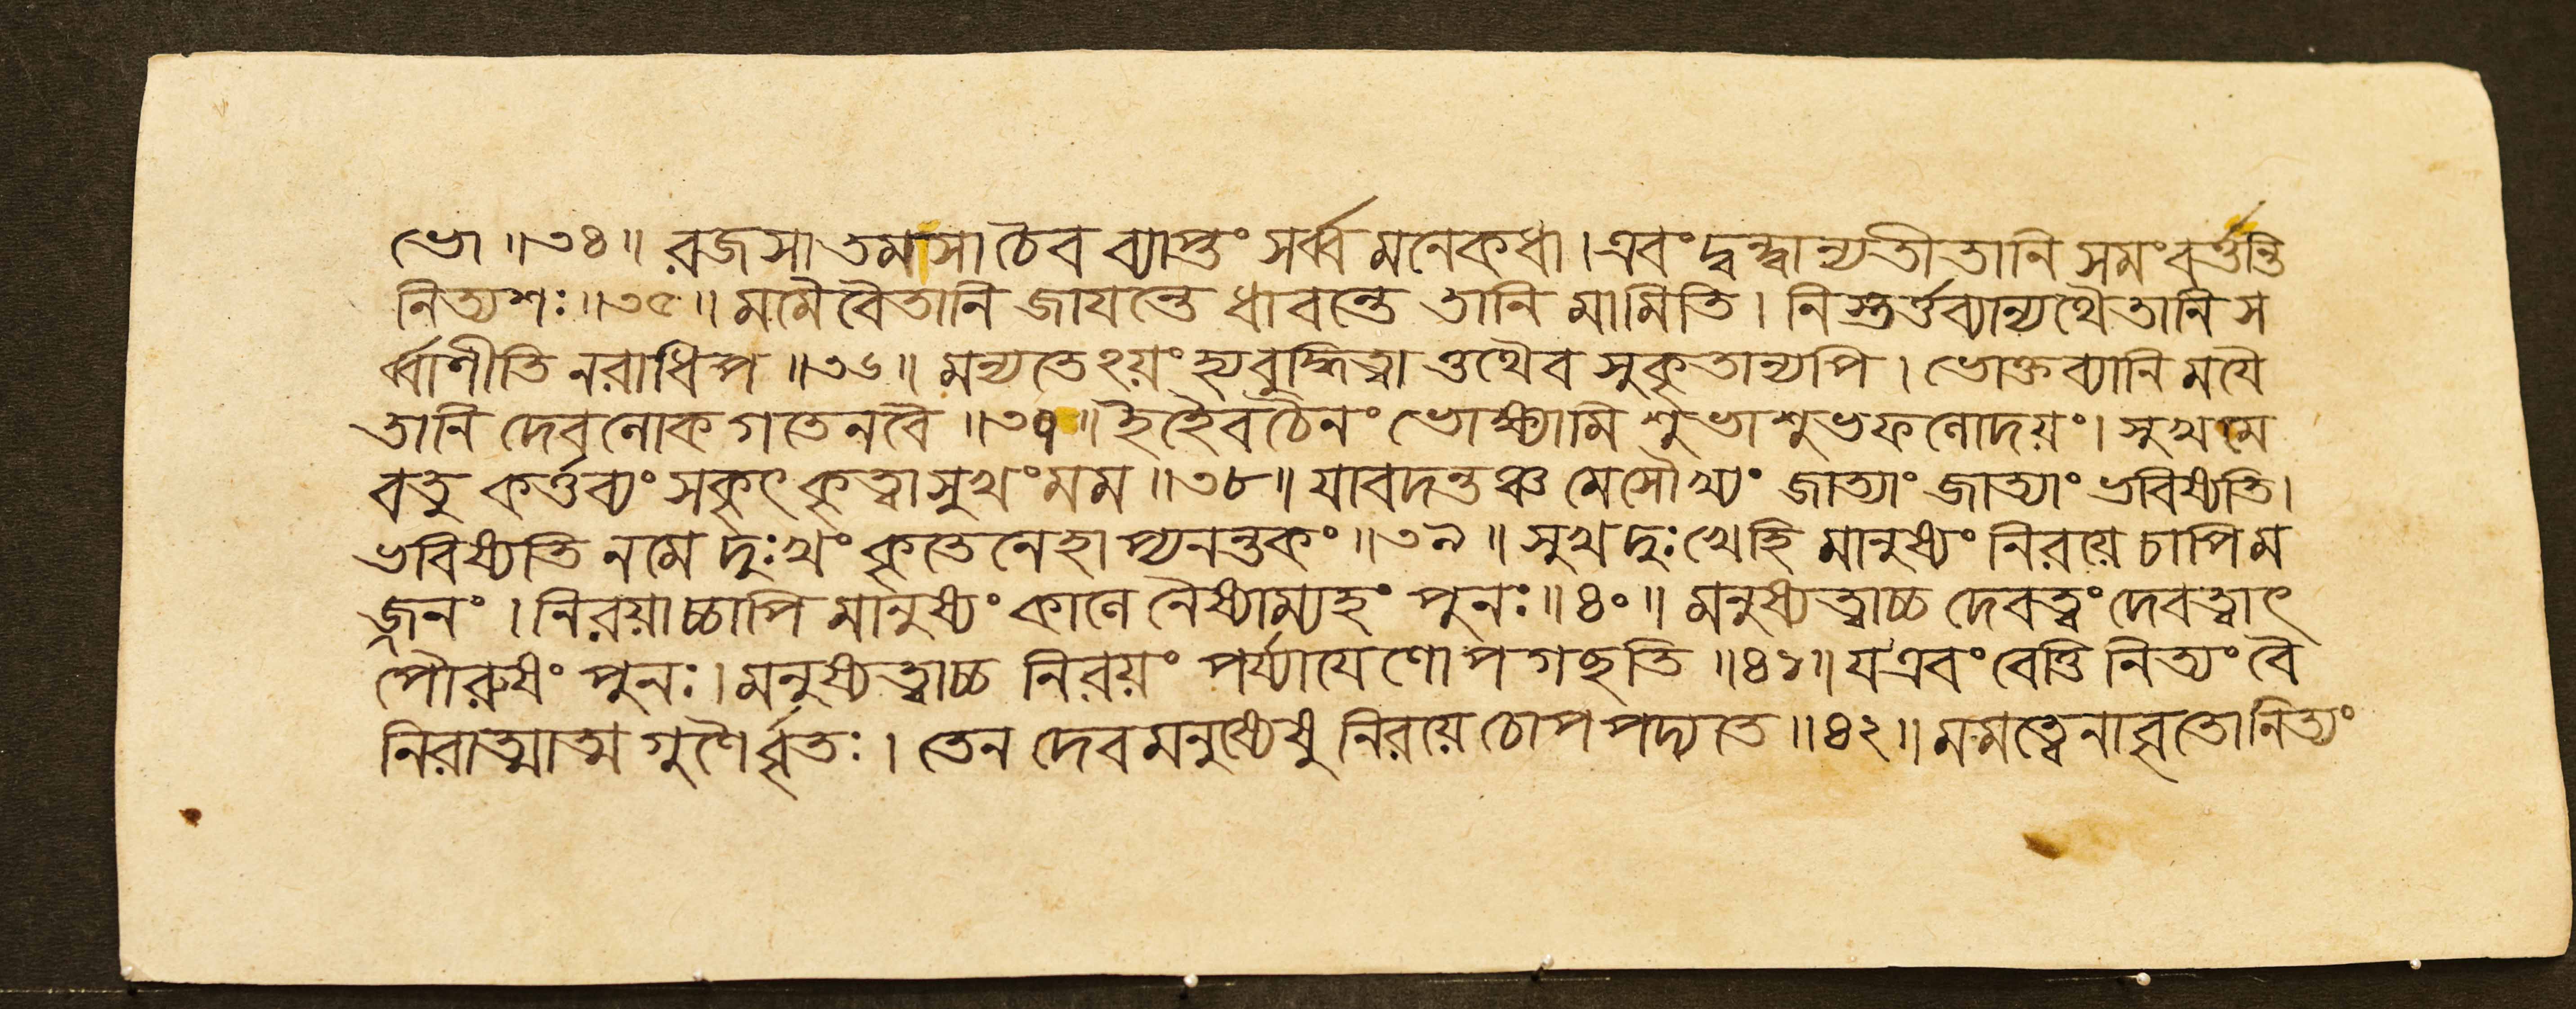 ভো ॥৩৪॥ রজসা তমসা চৈব ব্যাপ্তং সর্ব্বমনেকধা । এবং দ্বন্দ্বান্যতীতানি সমং বর্ত্তন্তি
নিত্যশঃ ॥৩৫॥ মমৈবৈতানি জায়ন্তে ধাবন্তে তানি মামিতি । নিস্তর্ত্তব্যান্যথৈতানি স
র্ব্বাণীতি নরাধিপ ॥৩৬॥ মন্যতেঽয়ং হ্যবুদ্ধিত্বা ত্তথৈব সুকৃতান্যপি । ভোক্তব্যানি ময়ৈ
তানি দেবলোক গতেন বৈ ॥৩৭॥ ইহৈব চৈনং ভোক্ষ্যামি শুভাশুভফলোদয়ং । সুখমে
বতু কর্ত্তব্যং সকৃৎ কৃত্বা সুখং মম ॥৩৮॥ যাবদন্তঞ্চ মে সৌখ্যং জাত্যাং জাত্যাং ভবিষ্যতি ।
ভবিষ্যতি ন মে দুঃখং কৃতেনেহাপ্যনন্তকং ॥৩৯॥ সুখদুঃখে হি মানুষ্যং নিরয়ে চাপি ম
জ্জনং । নিরয়াচ্চাপি মানুষ্যং কালে নৈষ্যাম্যহং পুনঃ ॥৪০॥ মনুষ্যত্বাচ্চ দেবত্বং দেবত্বাৎ
পৌরুষং পুনঃ । মনুষ্যত্বাচ্চ নিরয়ং পর্য্যায়েণোপগচ্ছতি ॥৪১॥ য এবং বেত্তি নিত্যং বৈ
নিরাত্মাত্ম গুণৈর্বৃতঃ । তেন দেবমনুষ্যেষু নিরয়ে চোপপদ্যতে ॥৪২॥ মমত্বেনাবৃতো নিত্যং